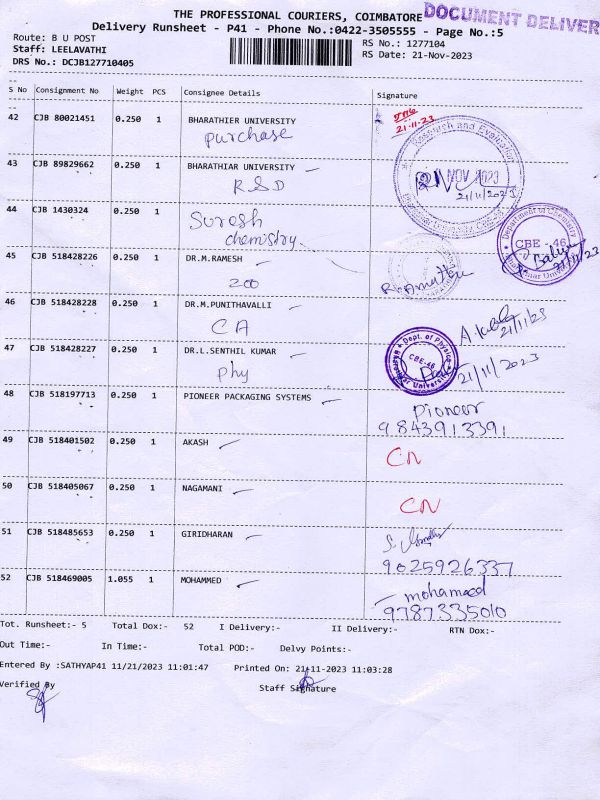 THE PROFESSIONAL COURIERS, COIMBATORE DOCUMENT DELIVER
Delivery Runsheet - P41 - Phone No.:0422-3505555 - Page No.:5
Route: B U POST RS No.: 1277104
Staff: LEELAVATHI RS Date: 21-Nov-2023
DRS No.: DCJB127710405
S No Consignment No Weight PCS Consignee Details Signature
42 CJB 80021451 0.250 1 BHARATHIER UNIVERSITY
purchase 21.11.23
43 CJB 89829662 0.250 1 BHARATHIAR UNIVERSITY
R&D 21 NOV 2023
21/11/2023
Research and Evaluation
44 CJB 1430324 0.250 1 Suresh
chemistry.
Department of Chemistry
CBE - 46
21/11/23
Bharathiar University
45 CJB 518428226 0.250 1 DR.M.RAMESH
zoo
46 CJB 518428228 0.250 1 DR.M.PUNITHAVALLI
CA 21/11/23
47 CJB 518428227 0.250 1 DR.L.SENTHIL KUMAR
phy 21/11/2023
Dept. of Physics
CBE-46
Bharathiar University
48 CJB 518197713 0.250 1 PIONEER PACKAGING SYSTEMS
pioneer
9843913391
49 CJB 518401502 0.250 1 AKASH
CN
50 CJB 518405067 0.250 1 NAGAMANI
CN
51 CJB 518485653 0.250 1 GIRIDHARAN
9025926337
52 CJB 518469005 1.055 1 MOHAMMED
mohamaed
9787335010
Tot. Runsheet:- 5 Total Dox:- 52 I Delivery:- II Delivery:- RTN Dox:-
Out Time:- In Time:- Total POD:- Delvy Points:-
Entered By :SATHYAP41 11/21/2023 11:01:47 Printed On: 21-11-2023 11:03:28
Verified By Staff Signature